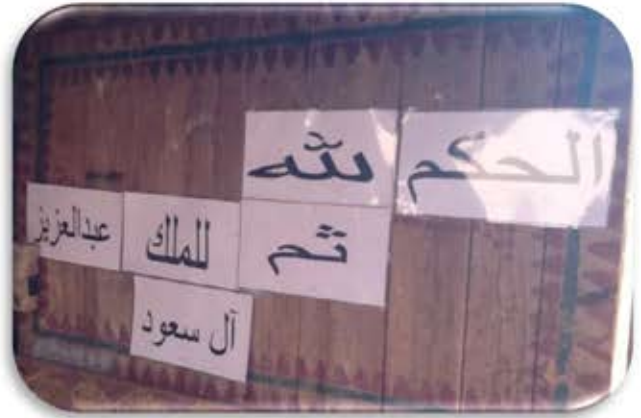 الحكم لله
ثم للملك عبدالعزيز
آل سعود